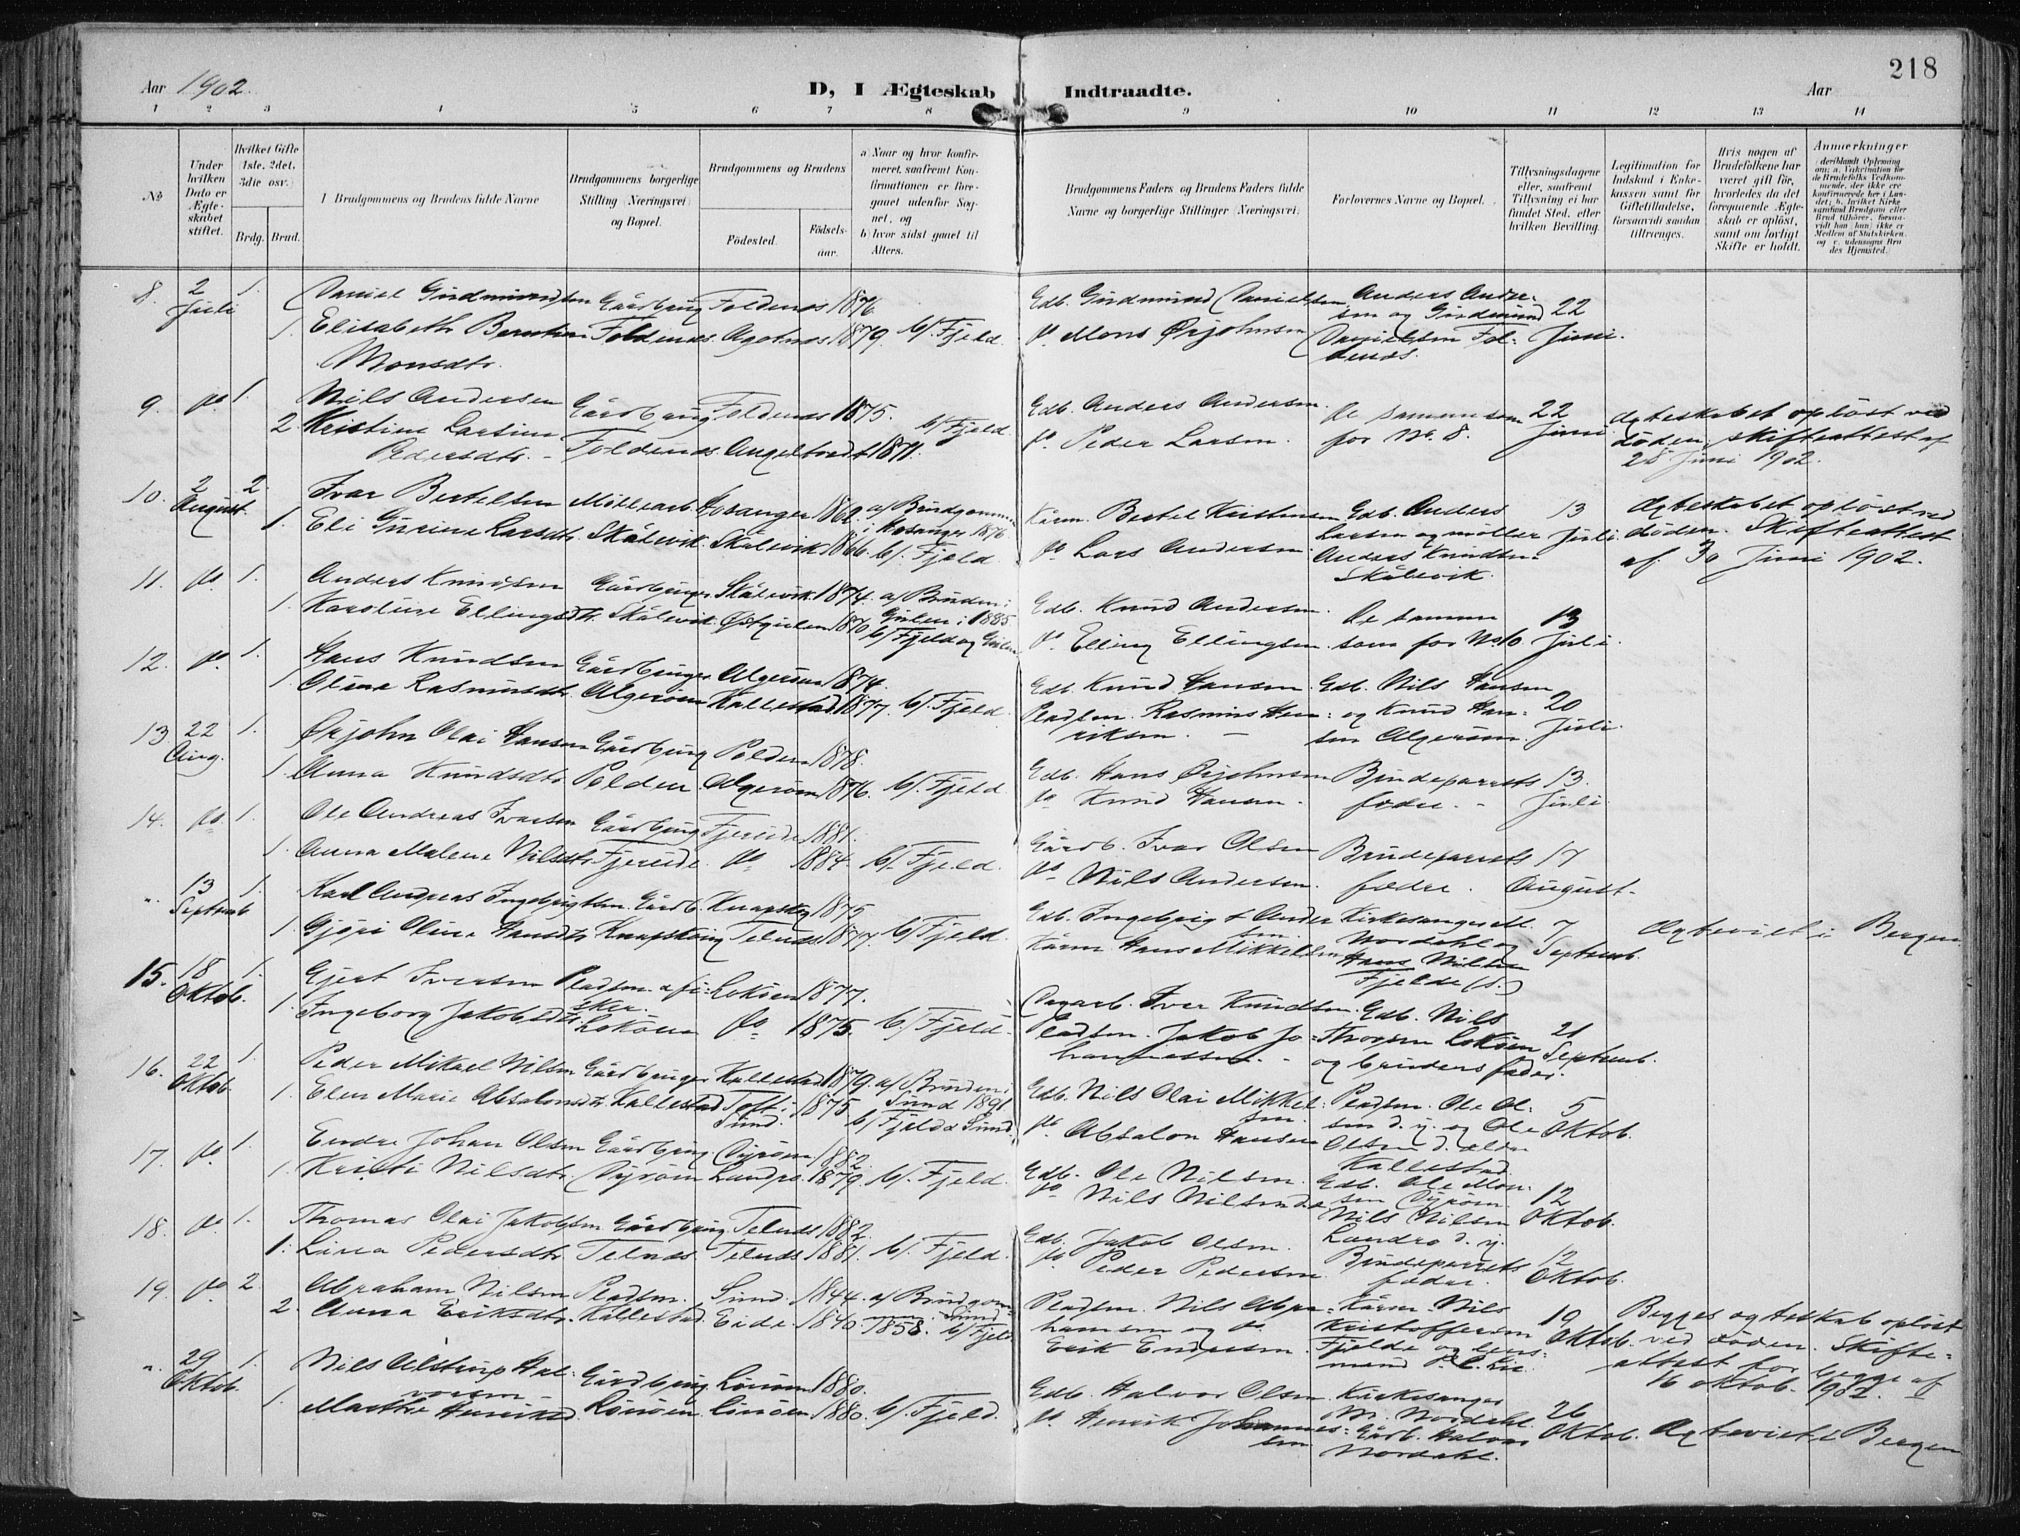 218
Aar 1902.
D, I Ægteskab Indtraadte.
Aar
1 2 3 4 5 6 7 8 9 10 11 12 13 14
No
Under hvilken Dato er Ægteskabet stiftet.
Hvilket Gifte (1ste, 2det, 3die osv.)
Brdg. Brud.
1 Brudgommens og Brudens fulde Navne
Brudgommens borgerlige Stilling (Næringsvei) og Bopæl.
Brudgommens og Brudens
Fødested. Fødselsaar.
a) Naar og hvor konfirmeret, saafremt Konfirmationen er foregaaet udenfor Sognet, og
b) hvor sidst gaaet til Alters.
Brudgommens Faders og Brudens Faders fulde Navne og borgerlige Stillinger (Næringsvei).
Forlovernes Navne og Bopæl.
Tillysningsdagene eller, saafremt Tillysning ei har fundet Sted, efter hvilken Bevilling.
Legitimation for Indskud i Enkekassen samt for Giftetilladelse, forsaavidt saadan tiltrænges.
Hvis nogen af Brudefolkene har været gift før, hvorledes da det foregaaende Ægteskab er opløst, samt om lovligt Skifte er holdt.
Anmærkninger
8. 2 Juli 1. Daniel Gudmundsen Gårdbrug Foldnes 1876
1. Elisabeth Bentine Foldnes. Agotnes 1879. b/. Fjeld.
Monsdtr.
Gdb. Gudmund Danielsen
do Mons Ørjohnsen
Anders Andersen og Gudmund Danielsen Foldnes.
22 Juni.
9. do 1. Nils Andersen Gårdbrug Foldnes 1875.
2. Kristine Larsine Pedersdtr. Foldnes. Angeltvedt 1871. b/ Fjeld.
Gdb. Anders Andersen.
do Peder Larsen.
De samme som for No. 8.
22 Juni
Ægteskabet opløst ved døden. Skifteattest af 28 Juni 1902.
10. 2 August. 2. Ivar Bertelsen Møllearb. Hosanger 1862. a/ Brudgommen i Hosanger 1876
1. Eli Gurine Larsdtr. Skålevik. Skålevik 1866. b/. Fjeld
Kårm. Bertel Kristensen
do Lars Andersen
Gdb. Anders Larsen og møller Anders Knudsen Skålevik.
13 Juli
Ægteskabet opløst ved døden. Skifteattest af 30 Juni 1902.
11. do 1. Anders Knudsen Gårdbruger Skålevik 1874. a/ Bruden i Gulen i 1885
1. Karoline Ellingsdtr. Skålevik. Østgulen 1870 b/ Fjeld og Gulen
Gdb. Knud Andersen.
do Elling Ellingsen.
De samme som for No. 10
13 Juli.
12. do 1. Hans Knudsen Gårdbruger Algerøen 1874.
1. Oline Rasmusdtr. Algerøen Kallestad 1877. b/. Fjeld.
Gdb. Knud Hansen.
Pladsm. Rasmus Henriksen. —
Gdb. Nils Hansen og Knud Hansen Algerøen.
20 Juli.
13 22 Aug. 1. Ørjohn Olai Hansen Gårdbrug Polden 1878.
1. Anna Knudsdtr. Polden. Algerøen 1876. b/. Fjeld
Gdb. Hans Ørjohnsen
do Knud Hansen.
Brudeparrets fædre. -
13. Juli
14. do 1. Ole Andreas Ivarsen Gårdbrug Fjereide 1881.
1. Anna Malene Nilsdtr. Fjereide. do 1884. b/. Fjeld.
Gårdb. Ivar Olsen
do Nils Andersen.
Brudeparrets fædre.
17 August.
". 13 Septemb 1. Karl Andreas Ingebrigtsen Gårdb. Knapskog 1875
1. Gjøri Oline Hansdtr. Knapskog Telnes 1877. b/ Fjeld.
Gdb. Ingebrigt Andersen
Kårm. Hans Mikkelsen
Kirkesanger M. Nordahl og Hans Nilsen Fjelde (s.)
7 Septemb.
Ægteviet i Bergen
15. 18 Oktob. 1. Gjert Iversen Pladsm. & fisker Loköen 1877.
1. Ingeborg Jakobsdtr. Loköen do 1875. b/ Fjeld
Dagarb. Iver Knudsen.
Pladsm. Jakob Johannessen. -
Gdb. Nils Thorsen Loköen og brudens fader.
21 Septemb.
16. 22 Oktob. 1. Peder Mikael Nilsen Gårdbruger Kallestad 1879. a/ Bruden i Sund 1891
1. Elen Marie Absalonsdtr. Kallestad Toft i Sund. 1875 b/ Fjeld & Sund.
Gdb. Nils Olai Mikkelsen.
do Absalon Hansen
Pladsm. Ole Olsen d. y. og Ole Olsen d. ældre Kallestad.
5 Oktob.
17. do 1. Endre Johan Olsen Gårdbrug. Dyrøen 1882.
1. Kristi Nilsdtr. Dyrøen Landro 1879. b/. Fjeld.
Gdb. Ole Nilsen.
do Nils Nilsen
Gdb. Ole Monsen Dyrøen. Nils Nilsen Landro d. y.
12 Oktob.
18. do. 1. Thomas Olai Jakobsen Gårdbrug Telnes 1882.
1. Lina Pedersdtr. Telnes. Telnes 1881. b/. Fjeld.
Gdb. Jakob Olsen.
do Peder Pedersen.
Brudeparrets fædre.
12 Oktob.
19. do 2. Abraham Nilsen Pladsm. Sund. 1844. a/ Brudgommen i Sund 1858.
2. Anna Eriksdtr. Kallestad. Eide. 1840. b/ Fjeld
Pladsm. Nils Abrahamsen og do. Erik Endresen.
Kårm. Nils Kristoffersen Fjelde og lensmand P. C. Lie.
19 Oktob.
Begges ægteskab opløst ved døden. Skifteattest for begge af 16 Oktob. 1902.
". 29 Oktob. 1. Nils Alstrup Halvorsen Gårdbrug Lønøen 1880.
1. Marthe Henriksd. Lønøen. Lønøen 1880. b/. Fjeld.
Gdb. Halvor Olsen
do. Henrik Johannessen
Kirkesanger M. Nordahl. Gårdb. Halvor Nordahl.
26 Oktob.
Ægteviet i Bergen